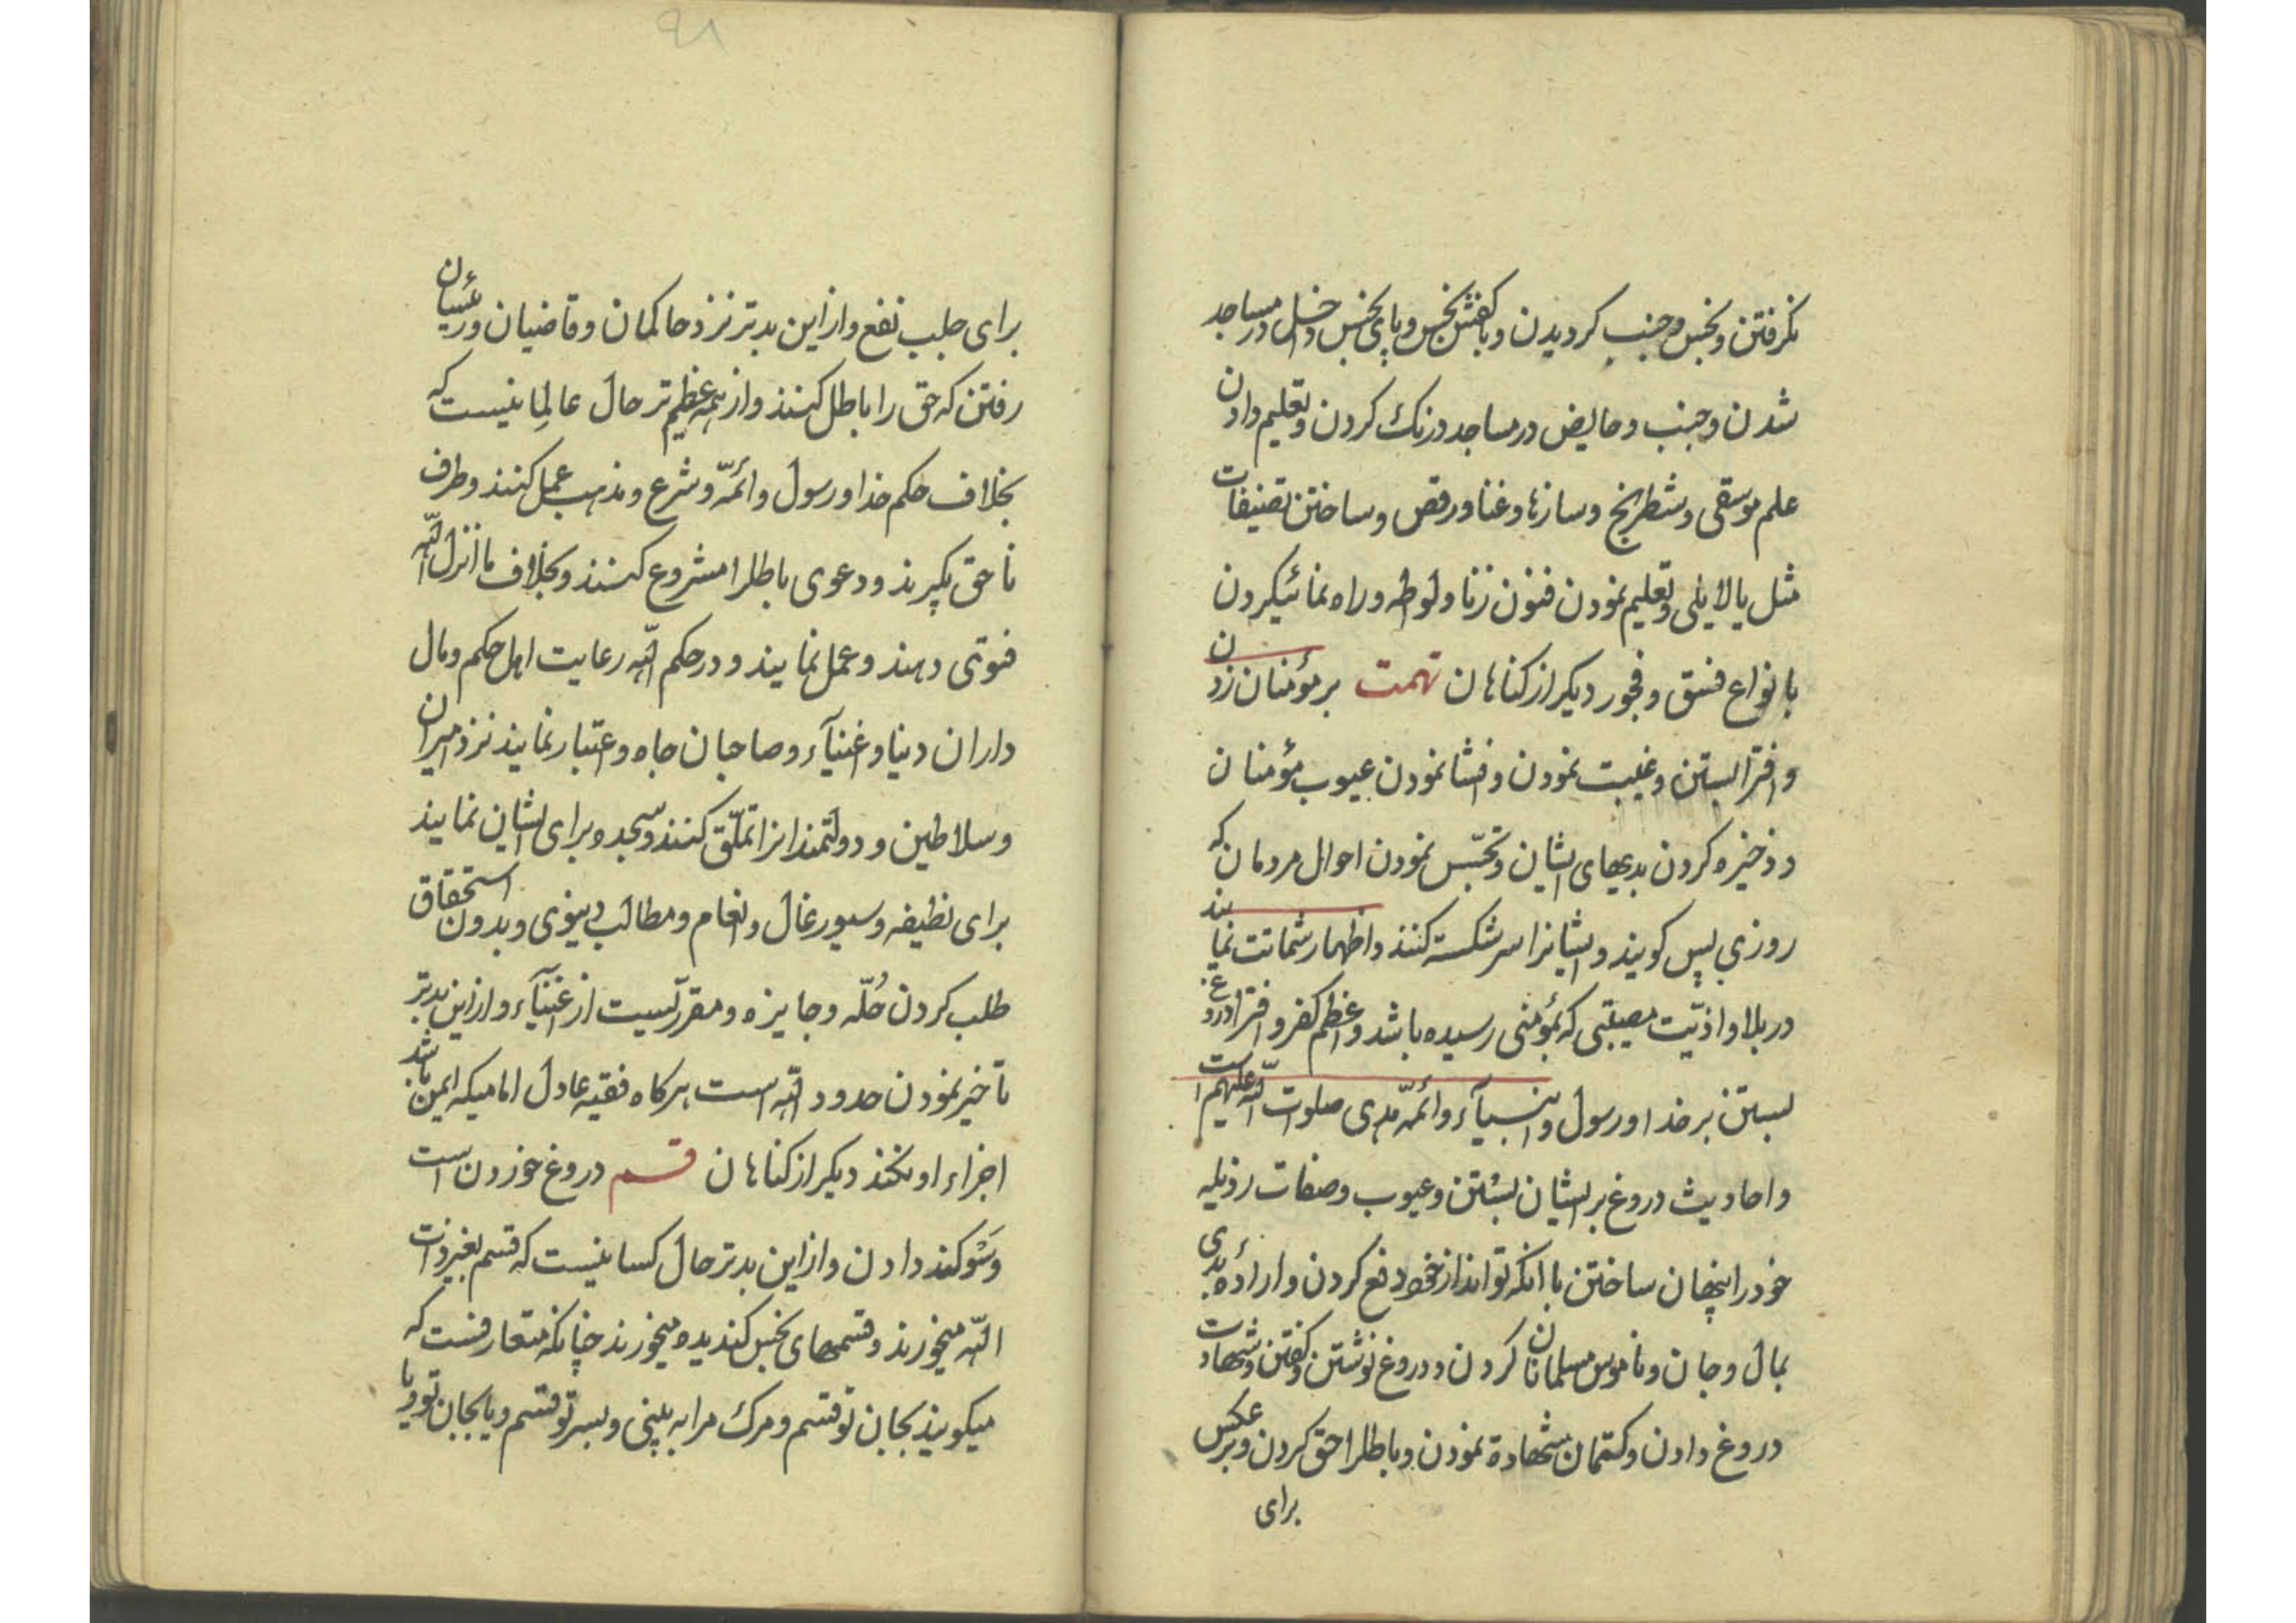 نکرفتن و نجس و جنب کردیدن و باکفش نجس و پای نجس داخل در مساجد
شدن و جنب و حایض در مساجد درنک کردن و تعلیم دادن
علم موسقی و شطرنج و سازها و غنا و رقص و ساختن تصنیفات
مثل یالایلی و تعلیم نمودن فنون زنا و لوطه و راه نمائیکردن
بانواع فسق و فجور دیکر از کناهان تهمت بر مؤمنان زدن
و افترا بستن و غیبت نمودن و افشا نمودن عیوب مؤمنان
و ذخیره کردن بدیهای ایشان و تجسّس نمودن احوال مردمان که
روزی پس کویند و ایشانرا سرشکسته کنند و اظهار شماتت نمایند
در بلا و اذیّت مصیبتی که بمؤمنی رسیده باشد و اعظم کفر و افترا دروغ
بستن بر خدا و رسول و انبیآء و ائمّه هدی صلوات اللّه علیهم است
و احادیث دروغ بر ایشان بستن و عیوب و صفات رذیله
خود را پنهان ساختن با انکه تواند از خود دفع کردن و ارادهٔ بدی
بمال و جان و ناموس مسلمانان کردن و دروغ نوشتن و کفتن و شهادت
دروغ دادن و کتمان شهادة نمودن و باطلرا حق کردن و برعکس
برای
۹۸
برای جلب نفع و از این بدتر نزد حاکمان و قاضیان و رئیسان
رفتن که حق را باطل کنند و از همه عظیم تر حال عالمانیست که
بخلاف حکم خدا و رسول و ائمّه و شرع و مذهب عمل کنند و طرف
ناحق بکیرند و دعوی باطلرا مشروع کنند و بخلاف ما انزل اللّه
فتوی دهند و عمل نمایند و در حکم اللّه رعایت اهل حکم و مال
داران دنیا و اغنیآء و صاحبان جاه و اعتبار نمایند نزد امیران
و سلاطین و دولتمندانرا تملّق کنند و سجده برای ایشان نمایند
برای نظیفه و سیورغال و انعام و مطالب دنیوی و بدون استحقاق
طلب کردن حُلّه و جایزه و مقرّریست از اغنیآء و از این بدتر
تأخیر نمودن حدود اللّه است هرکاه فقیه عادل امامیکه ایمن باشد
اجراء او نکند دیکر از کناهان قسم دروغ خوردن است
و سَوکند دادن و از این بدتر حال کسانیست که قسم بغیر ذات
اللّه میخورند و قسمهای نجس کندیده میخورند چنانکه متعارفست که
میکویند بجان تو قسم و مرک مرا به بینی و بسر تو قسم و یا بجان تو و یا